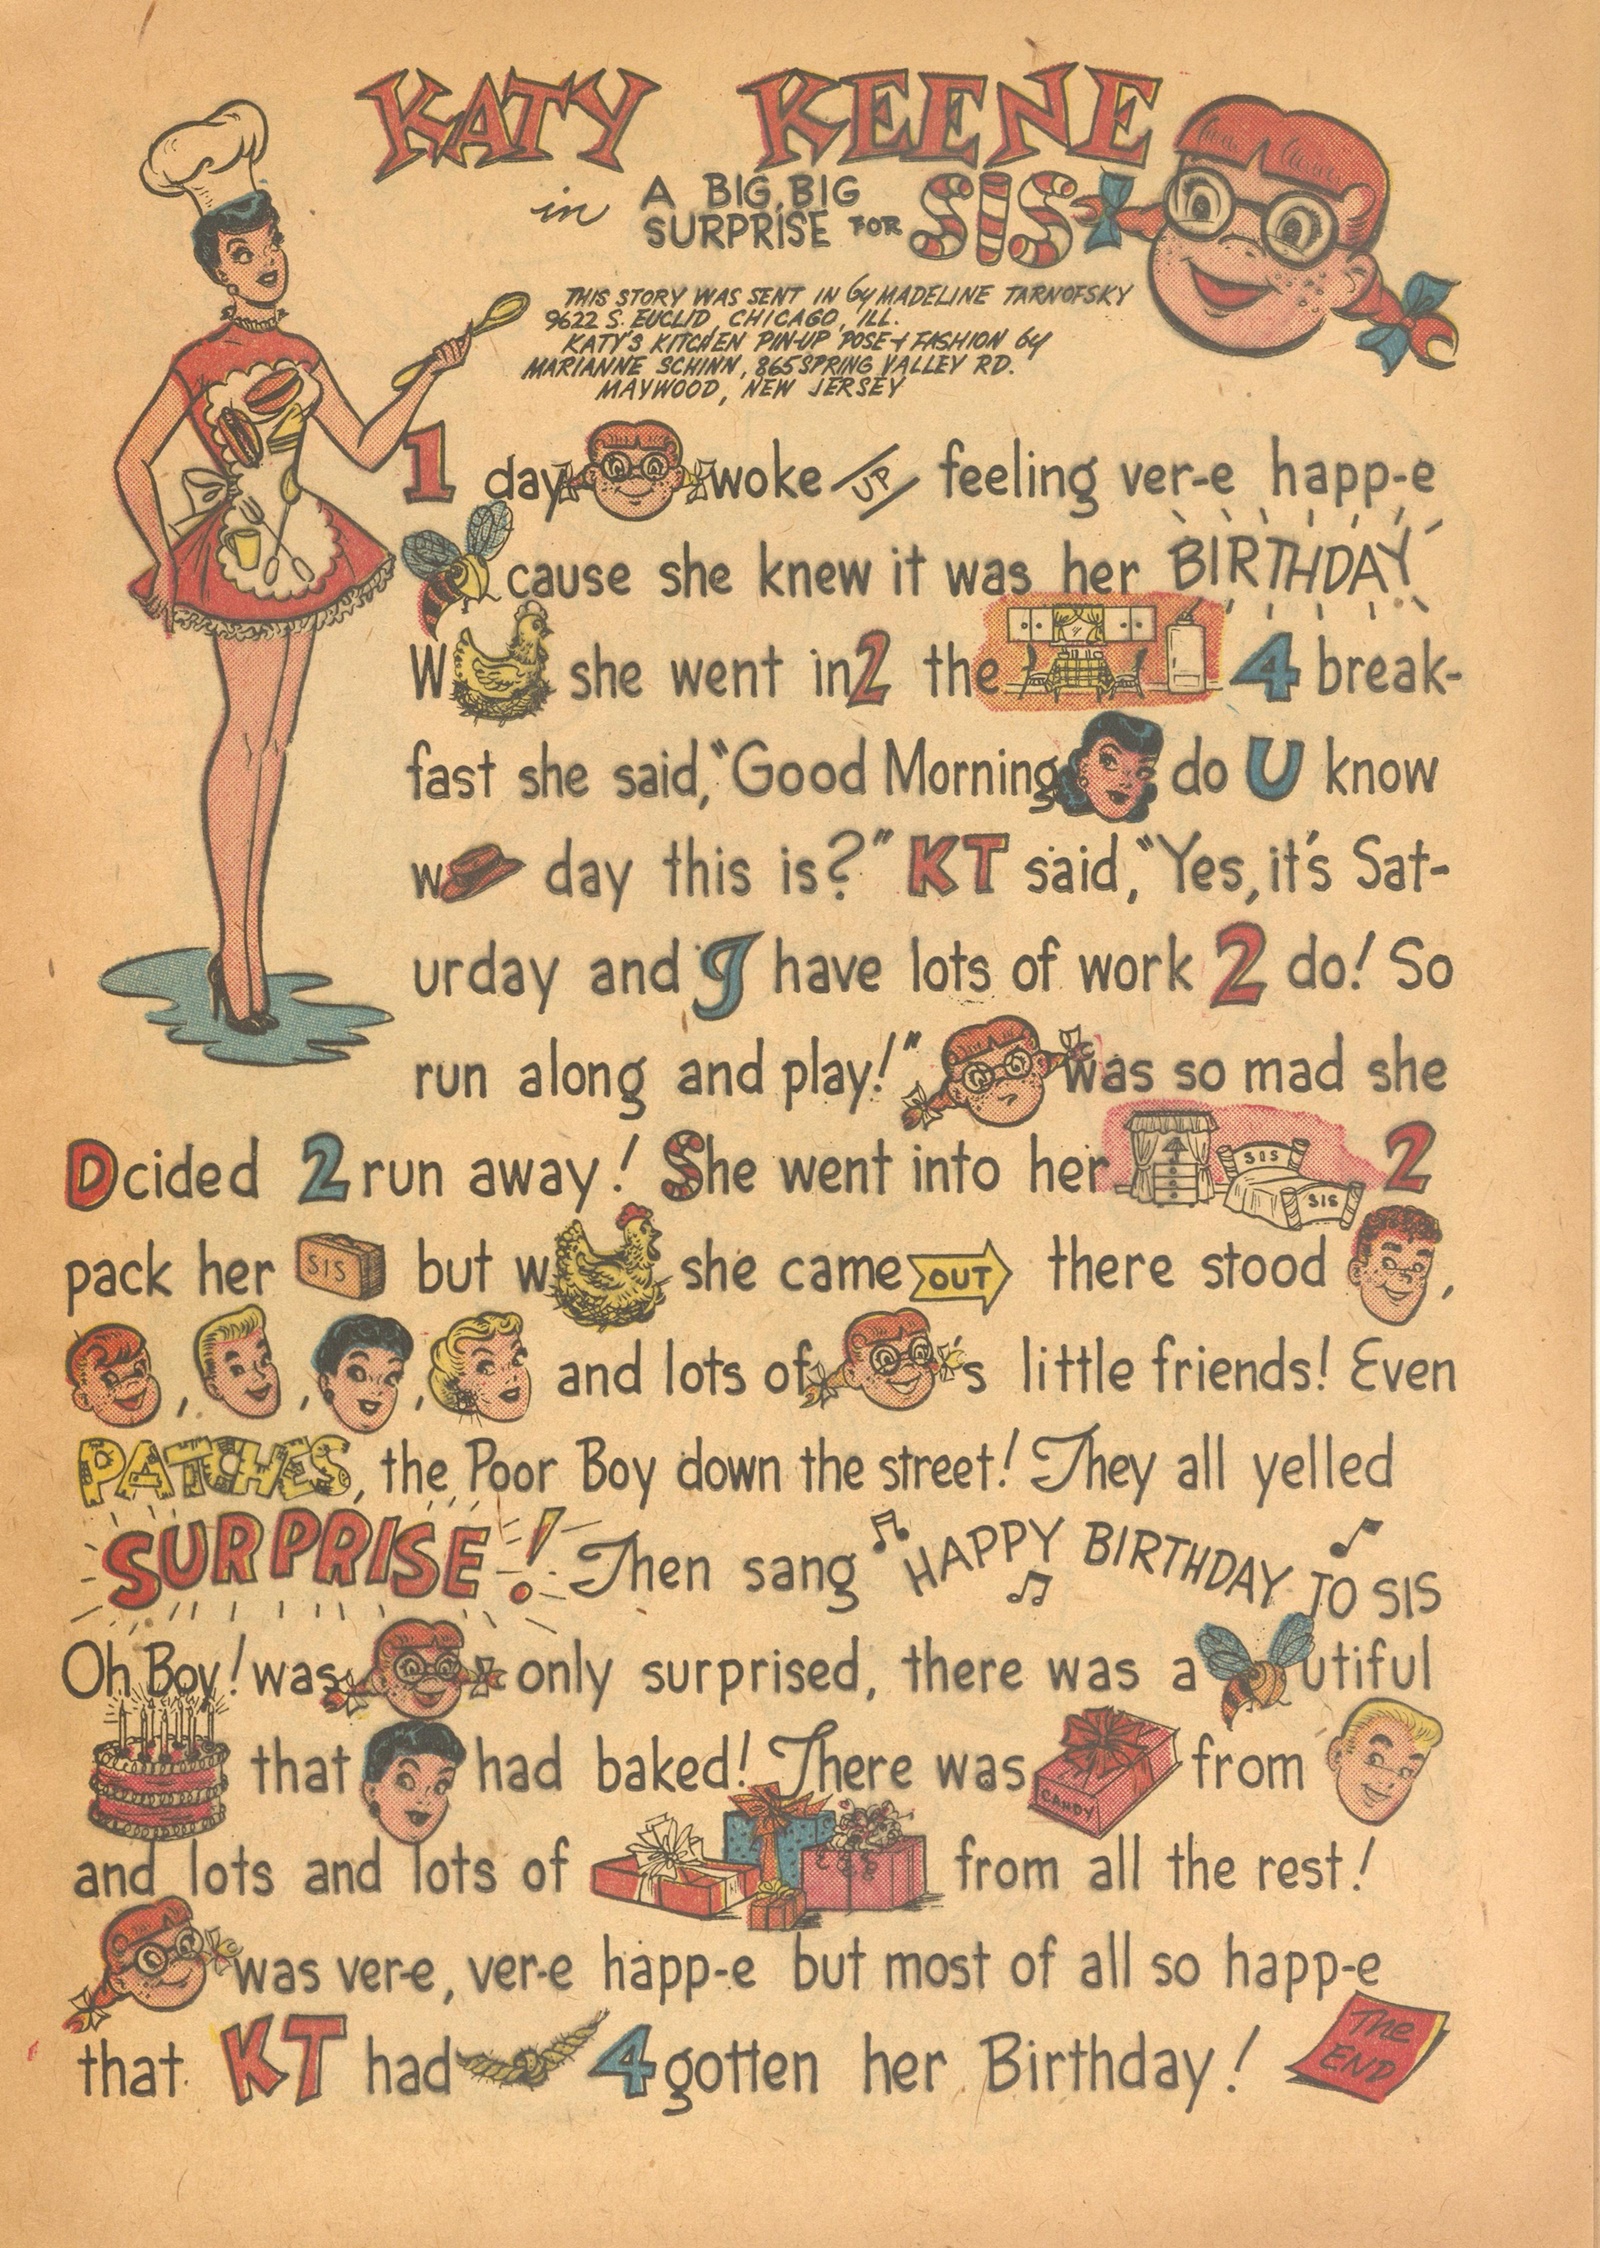 KATY KEENE
in A BIG, BIG
SURPRISE FOR SIS
THIS STORY WAS SENT IN by MADELINE TARNOFSKY
9622 S. EUCLID CHICAGO, ILL.
KATY'S KITCHEN PIN-UP POSE + FASHION by
MARIANNE SCHINN, 865 SPRING VALLEY RD.
MAYWOOD, NEW JERSEY
1 day woke UP feeling ver-e happ-e
cause she knew it was her BIRTHDAY
W she went in2 the 4 break-
fast she said, "Good Morning do U know
w day this is?" KT said, "Yes, it's Sat-
urday and I have lots of work 2 do! So
run along and play!" was so mad she
Dcided 2 run away! She went into her SIS SIS 2
pack her SIS but w she came OUT there stood ,
, , , and lots of 's little friends! Even
PATCHES, the Poor Boy down the street! They all yelled
SURPRISE! Then sang HAPPY BIRTHDAY TO SIS
Oh Boy! was only surprised, there was a utiful
that had baked! There was CANDY from
and lots and lots of from all the rest!
was ver-e, ver-e happ-e but most of all so happ-e
that KT had 4gotten her Birthday! The END